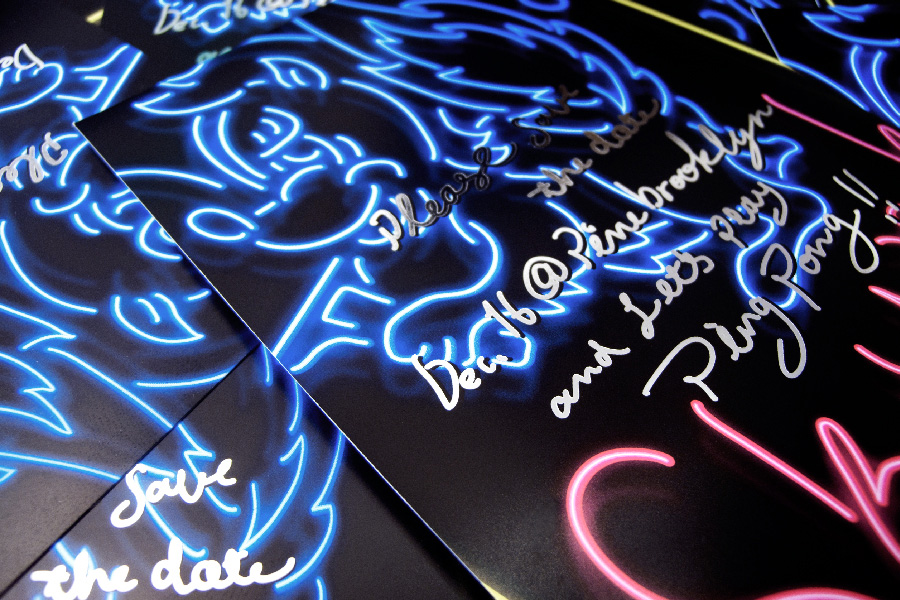 Please Save
the date
Dec 16 @ Pène brooklyn
and Let's Play
Ping Pong !!
Save
the date
Dec 16